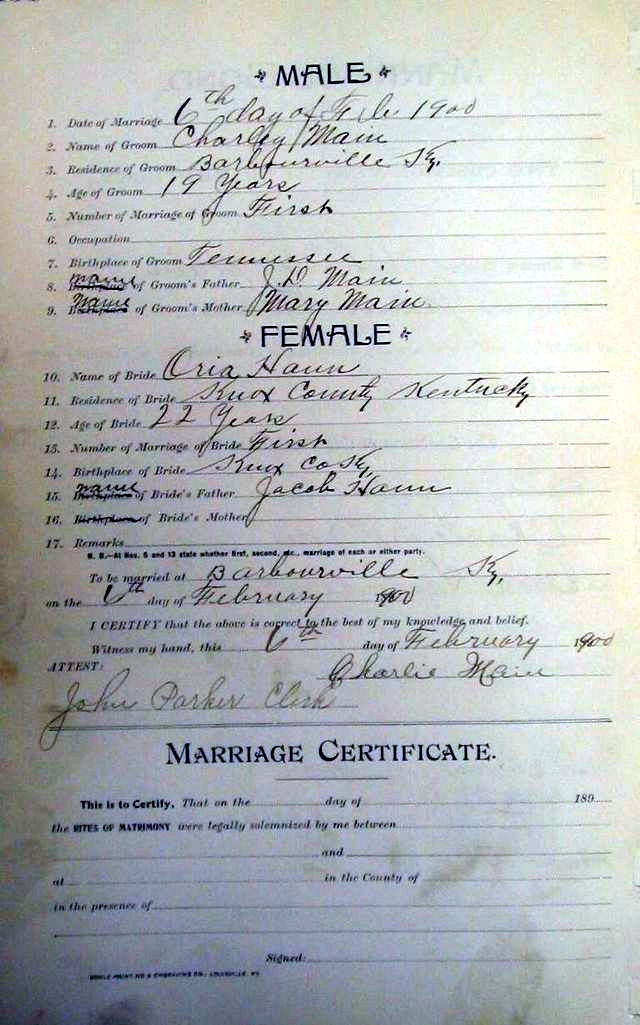 MALE
1. Date of Marriage 6th day of Feb. 1900
2. Name of Groom Charley Main
3. Residence of Groom Barbourville Ky.
4. Age of Groom 19 Years
5. Number of Marriage of Groom First
6. Occupation
7. Birthplace of Groom Tennessee
8. Birthplace name of Groom's Father J.D. Main
9. Birthplace Name of Groom's Mother Mary Main.
FEMALE
10. Name of Bride Oria Hann
11. Residence of Bride Knox County Kentucky
12. Age of Bride 22 Years
13. Number of Marriage of Bride First
14. Birthplace of Bride Knox Co Ky,
15. Birthplace name of Bride's Father Jacob Hann
16. Birthplace of Bride's Mother
17. Remarks
N. B.—At Nos. 5 and 13 state whether first, second, etc., marriage of each or either party.
To be married at Barbourville Ky,
on the 6th day of February 1900
I CERTIFY that the above is correct to the best of my knowledge and belief.
Witness my hand, this 6th day of February 1900
ATTEST: Charlie Main
John Parker Clerk
MARRIAGE CERTIFICATE.
This is to Certify, That on the day of 189
the RITES OF MATRIMONY were legally solemnized by me between
and
at in the County of
in the presence of
Signed:
PRINT'NG & ENGRAVING CO., LOUISVILLE, KY.